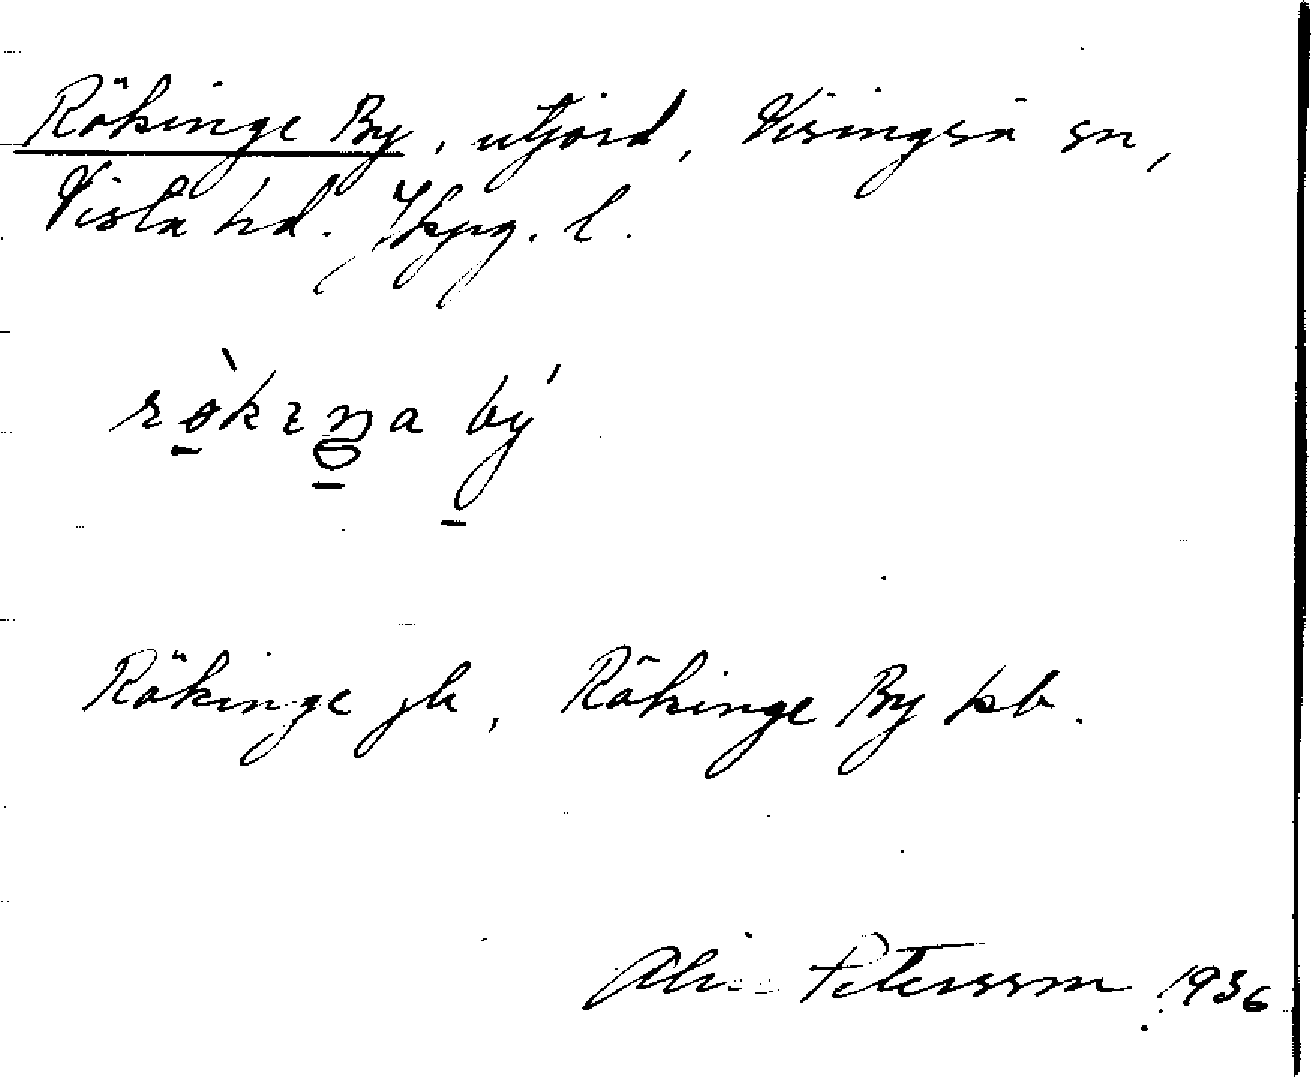 Rökinge By, utjord, Visingsö sn,
Vista hd. Jkpg. l.
rö̀kıŋa bý
Rökinge jb, Rökinge By kb.
Petersson 1936